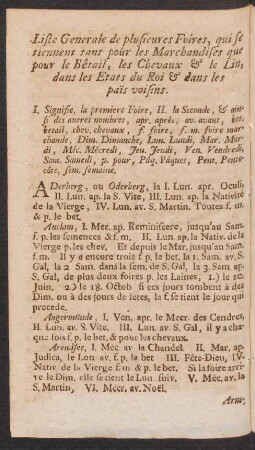 Liste Generale de plusieures Foires, qui se
tiennent tant pour les Marchandises que
pour le Bétail, les Chevaux & le Lin,
dans les Etats du Roi & dans les
païs voisins.
I. Signifie, la premiere Foire, II. la Seconde, & ain-
si des autres nombres, apr. après, av. avant, bet.
betail, chev. chevaux, f foire, f. m. foire mar-
chande, Dim. Dimanche, Lun. Lundi, Mar. Mar-
di, Méc. Mécredi, Jeu. Jeudi, Ven. Vendredi,
Sam. Samedi, p. pour, Pâq. Pâques, Pent. Pente-
côte, sem. semaine,
ADerberg, ou Oderberg, la I. Lun. apr. Oculi,
II. Lun. ap. la S. Vite, III. Lun. ap. la Nativité
de la Vierge, IV. Lun. av. S. Martin. Toutes f. m.
& p. le bet.
Anclam, I. Mec. ap. Reminiscere, jusqu'au Sam.
f. p. les semences & f. m. II. Lun. ap. la Nativ. de la
Vierge p. les chev. Et depuis le Mar. jusqu'au Sam.
f. m. Il y a encore trois f. p. le bet. la 1. Sam. av. S.
Gal, la 2. Sam. dans la sem. de S. Gal, la 3. Sam. ap.
S. Gal, de plus deux foires p. les Laines, 1.) le 12
Juin, 2.) le 18. Octob si ces jours tombent à des
Dim. ou à des jours de fêtes, la f. se tient le jour qui
precede.
Angermünde, I. Ven. apr. le Mecr. des Cendres,
II. Lun. av. S. Vite, III. Lun. av. S. Gal, il y a cha-
que fois f. p. le bet. & pour les chevaux.
Arendsee, I. Mec av. la Chandel. II. Mar. ap.
Judica, le Lun. av. f. p. le bet III. Fête-Dieu, IV.
Nativ. de la Vierge f. m & p. le bet. Si la foire arri-
ve le Dim. elle se tient le Lun. suiv. V. Méc. av. la
S. Martin, VI. Mécr. av. Noël.
Arns,